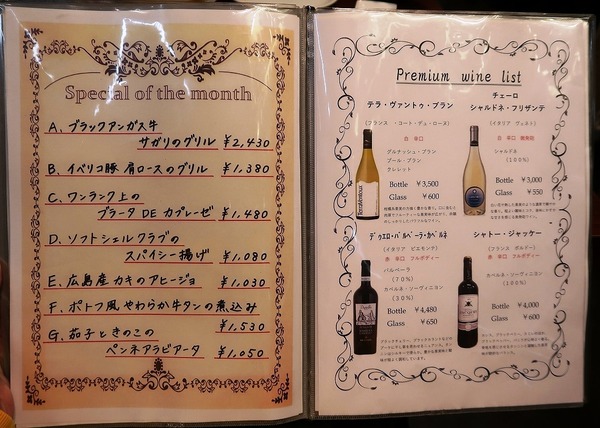 Special of the month
A、ブラックアンガス牛
サガリのグリル ¥2,430
B、イベリコ豚 肩ロースのグリル ¥1,380
C、ワンランク上の
ブラータ DE カプレーゼ ¥1,480
D、ソフトシェルクラブの
スパイシー揚げ ¥1,080
E、広島産カキのアヒージョ ¥1,030
F、ポトフ風やわらか牛タンの煮込み
¥1,530
G、茄子ときのこの
ペンネアラビアータ ¥1,050
Premium wine list
テラ・ヴァントゥ・ブラン
(フランス ・コート・デュ・ローヌ)
白 辛口
グルナッシュ・ブラン
ブール・ブラン
クレレット
Bottle ¥3,500
Glass ¥600
チェーロ
シャルドネ・フリザンテ
(イタリア ヴェネト)
白 辛口 微発泡
シャルドネ
(100%)
Bottle ¥3,000
Glass ¥550
デュエロ・バルベーラ・カベルネ
(イタリア ピエモンテ)
赤 辛口 フルボディー
バルベーラ
(70%)
カベルネ・ソーヴィニヨン
(30%)
Bottle ¥4,480
Glass ¥650
シャトー・ジャッケー
(フランス ボルドー)
赤 辛口 フルボディー
カベルネ・ソーヴィニヨン
(100%)
Bottle ¥4,000
Glass ¥600